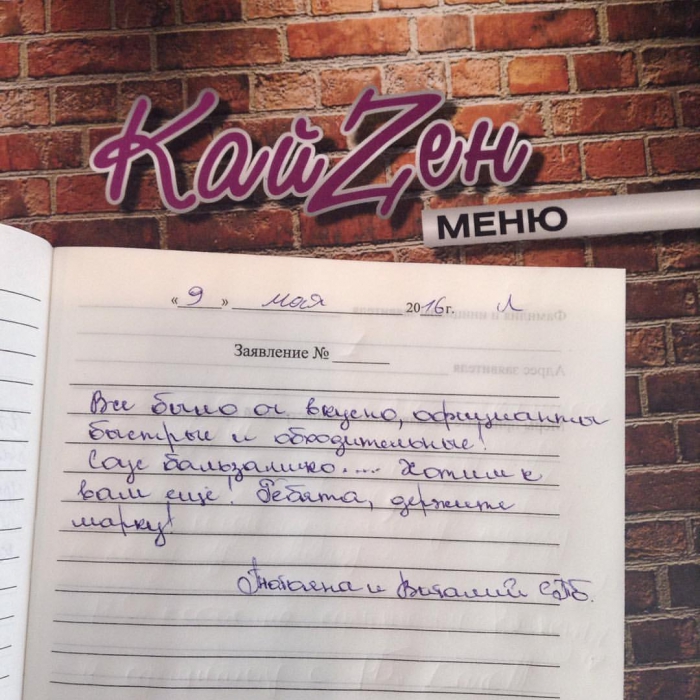 КайZен
МЕНЮ
« 9 » мая 2016 г.
Заявление №
Все было оч вкусно, официанты
быстрые и обходительные!
Соус бальзамико.... Хотим к
вам еще! Ребята, держите
марку!
Татьяна и Виталий СПб.
Фамилия и инициалы заявителя
Адрес заявителя